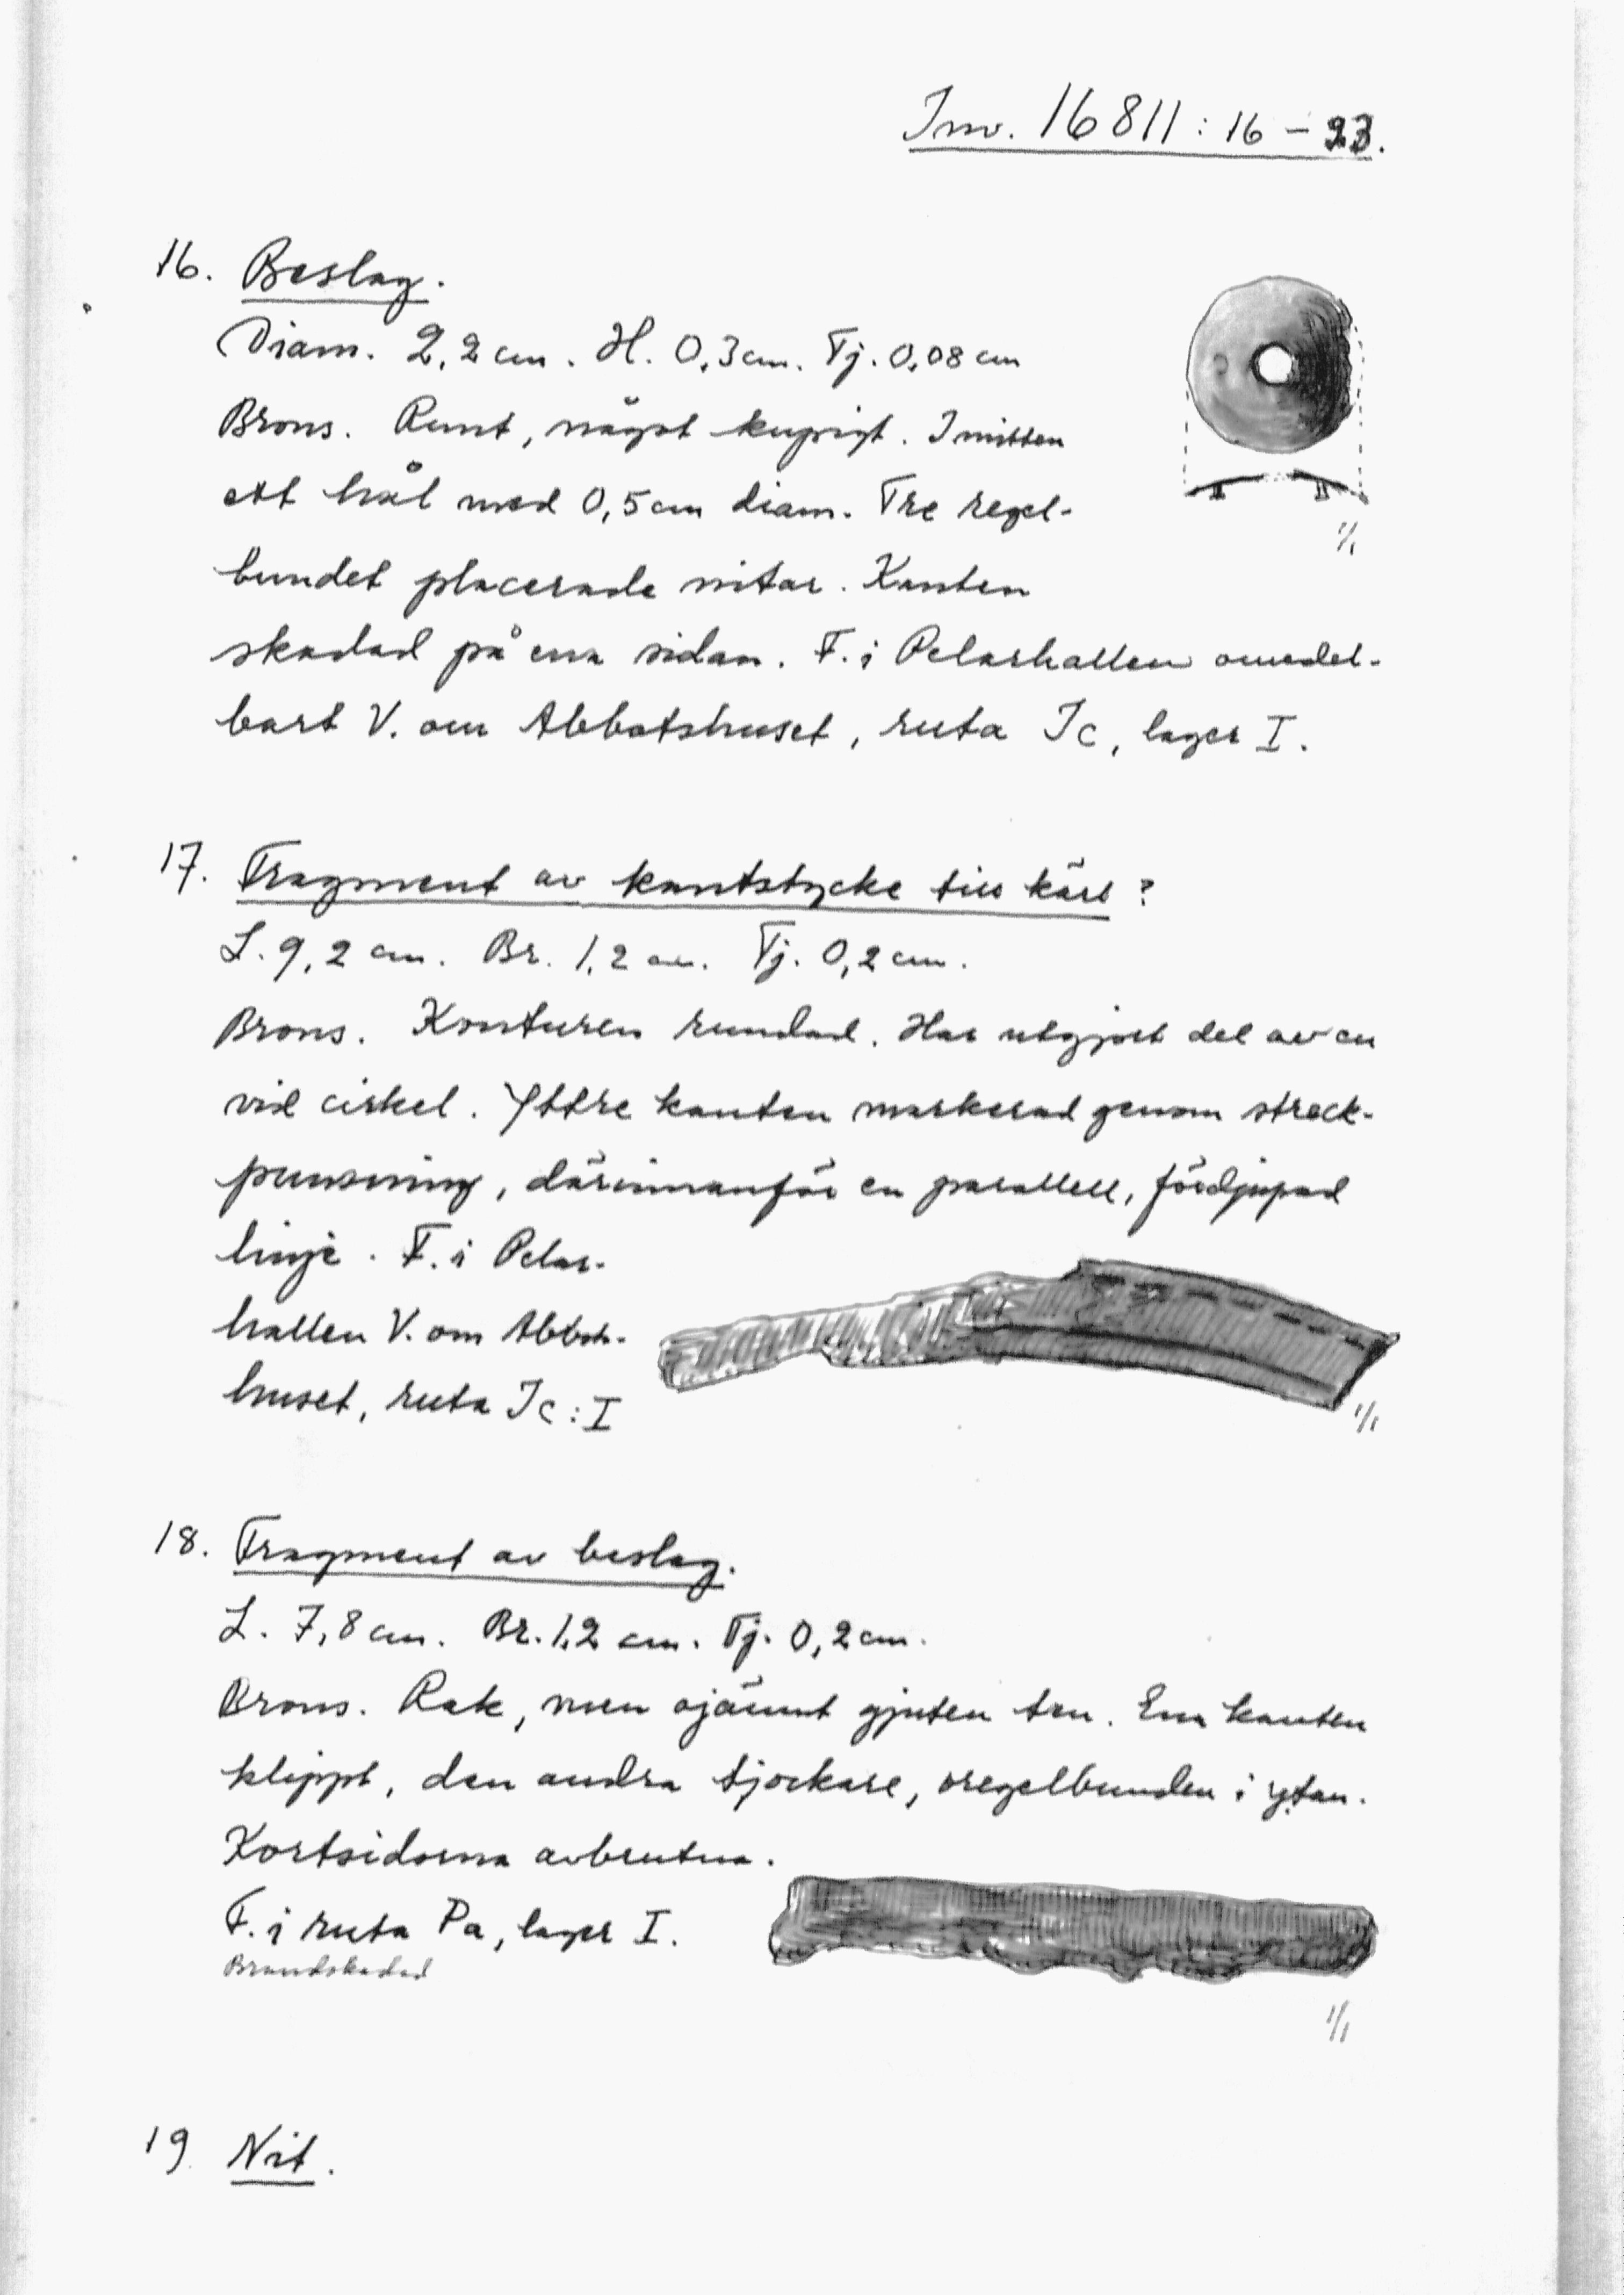 Inv. 16811:16 – 23.
16. Beslag.
Diam. 2,2 cm. H. 0,3 cm. Tj. 0,08 cm
1/1
Brons. Runt, något kupigt. I mitten
ett hål med 0,5 cm diam. Tre regel-
bundet placerade nitar. Kanten
skadad på ena sidan. F. i Pelarhallen omedel-
bart V. om Abbotshuset, ruta Ic, lager I.
17. Fragment av kantstycke till kärl?
L. 9,2 cm. Br. 1,2 cm. Tj. 0,2 cm.
Brons. Konturen rundad. Har utgjort del av en
vid cirkel. Yttre kanten markerad genom streck-
punsning, därinnanför en parallell, fördjupad
linje. F. i Pelar-
hallen V. om Abbots-
huset, ruta Ic:I
1/1
18. Fragment av beslag.
L. 7,8 cm. Br. 1,2 cm. Tj. 0,2 cm.
Brons. Rak, men ojämnt gjuten ten. Ena kanten
klippt, den andra tjockare, oregelbunden i ytan.
Kortsidorna avbrutna.
F. i ruta Pa, lager I.
Brandskadad
1/1
19. Nit.